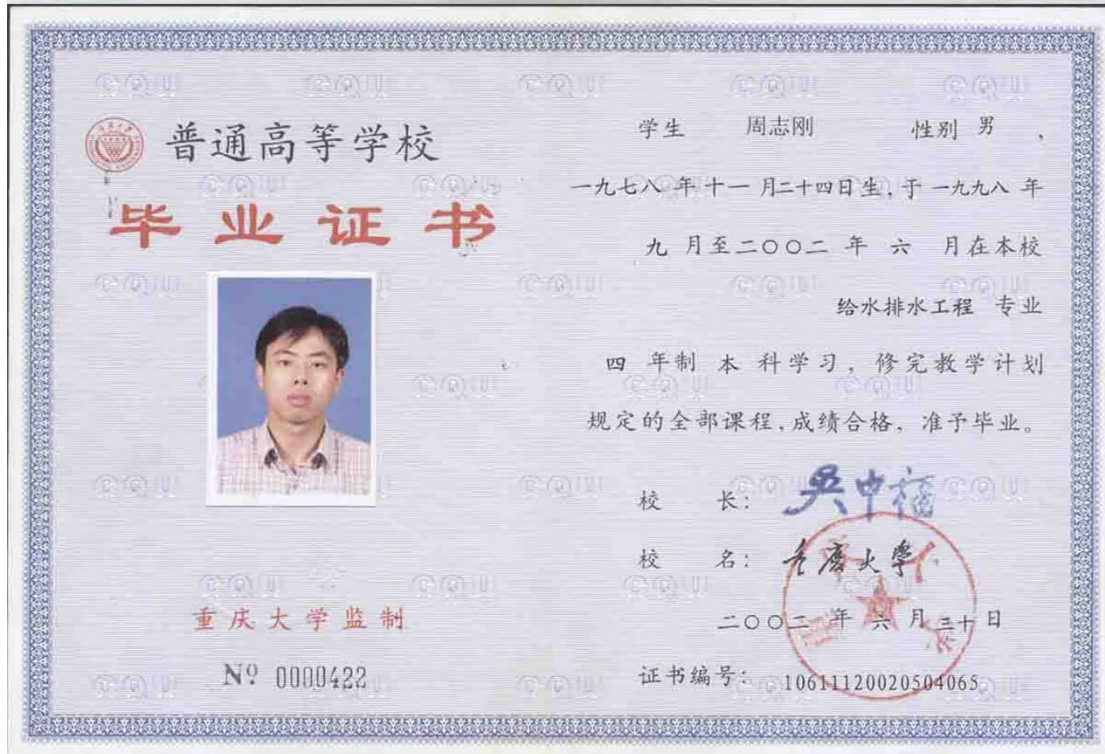 普通高等学校
毕业证书
重庆大学监制
Nº 0000422
学生 周志刚 性别 男 、
一九七八 年 十一 月二十四日生,于 一九九八 年
九 月至二〇〇二 年 六 月在本校
给水排水工程 专业
四 年制 本 科学习，修完教学计划
规定的全部课程,成绩合格，准予毕业。
校 长: 吴中福
校 名: 重庆大学
二〇〇二 年 六 月 三十 日
证书编号: 10611120020504065